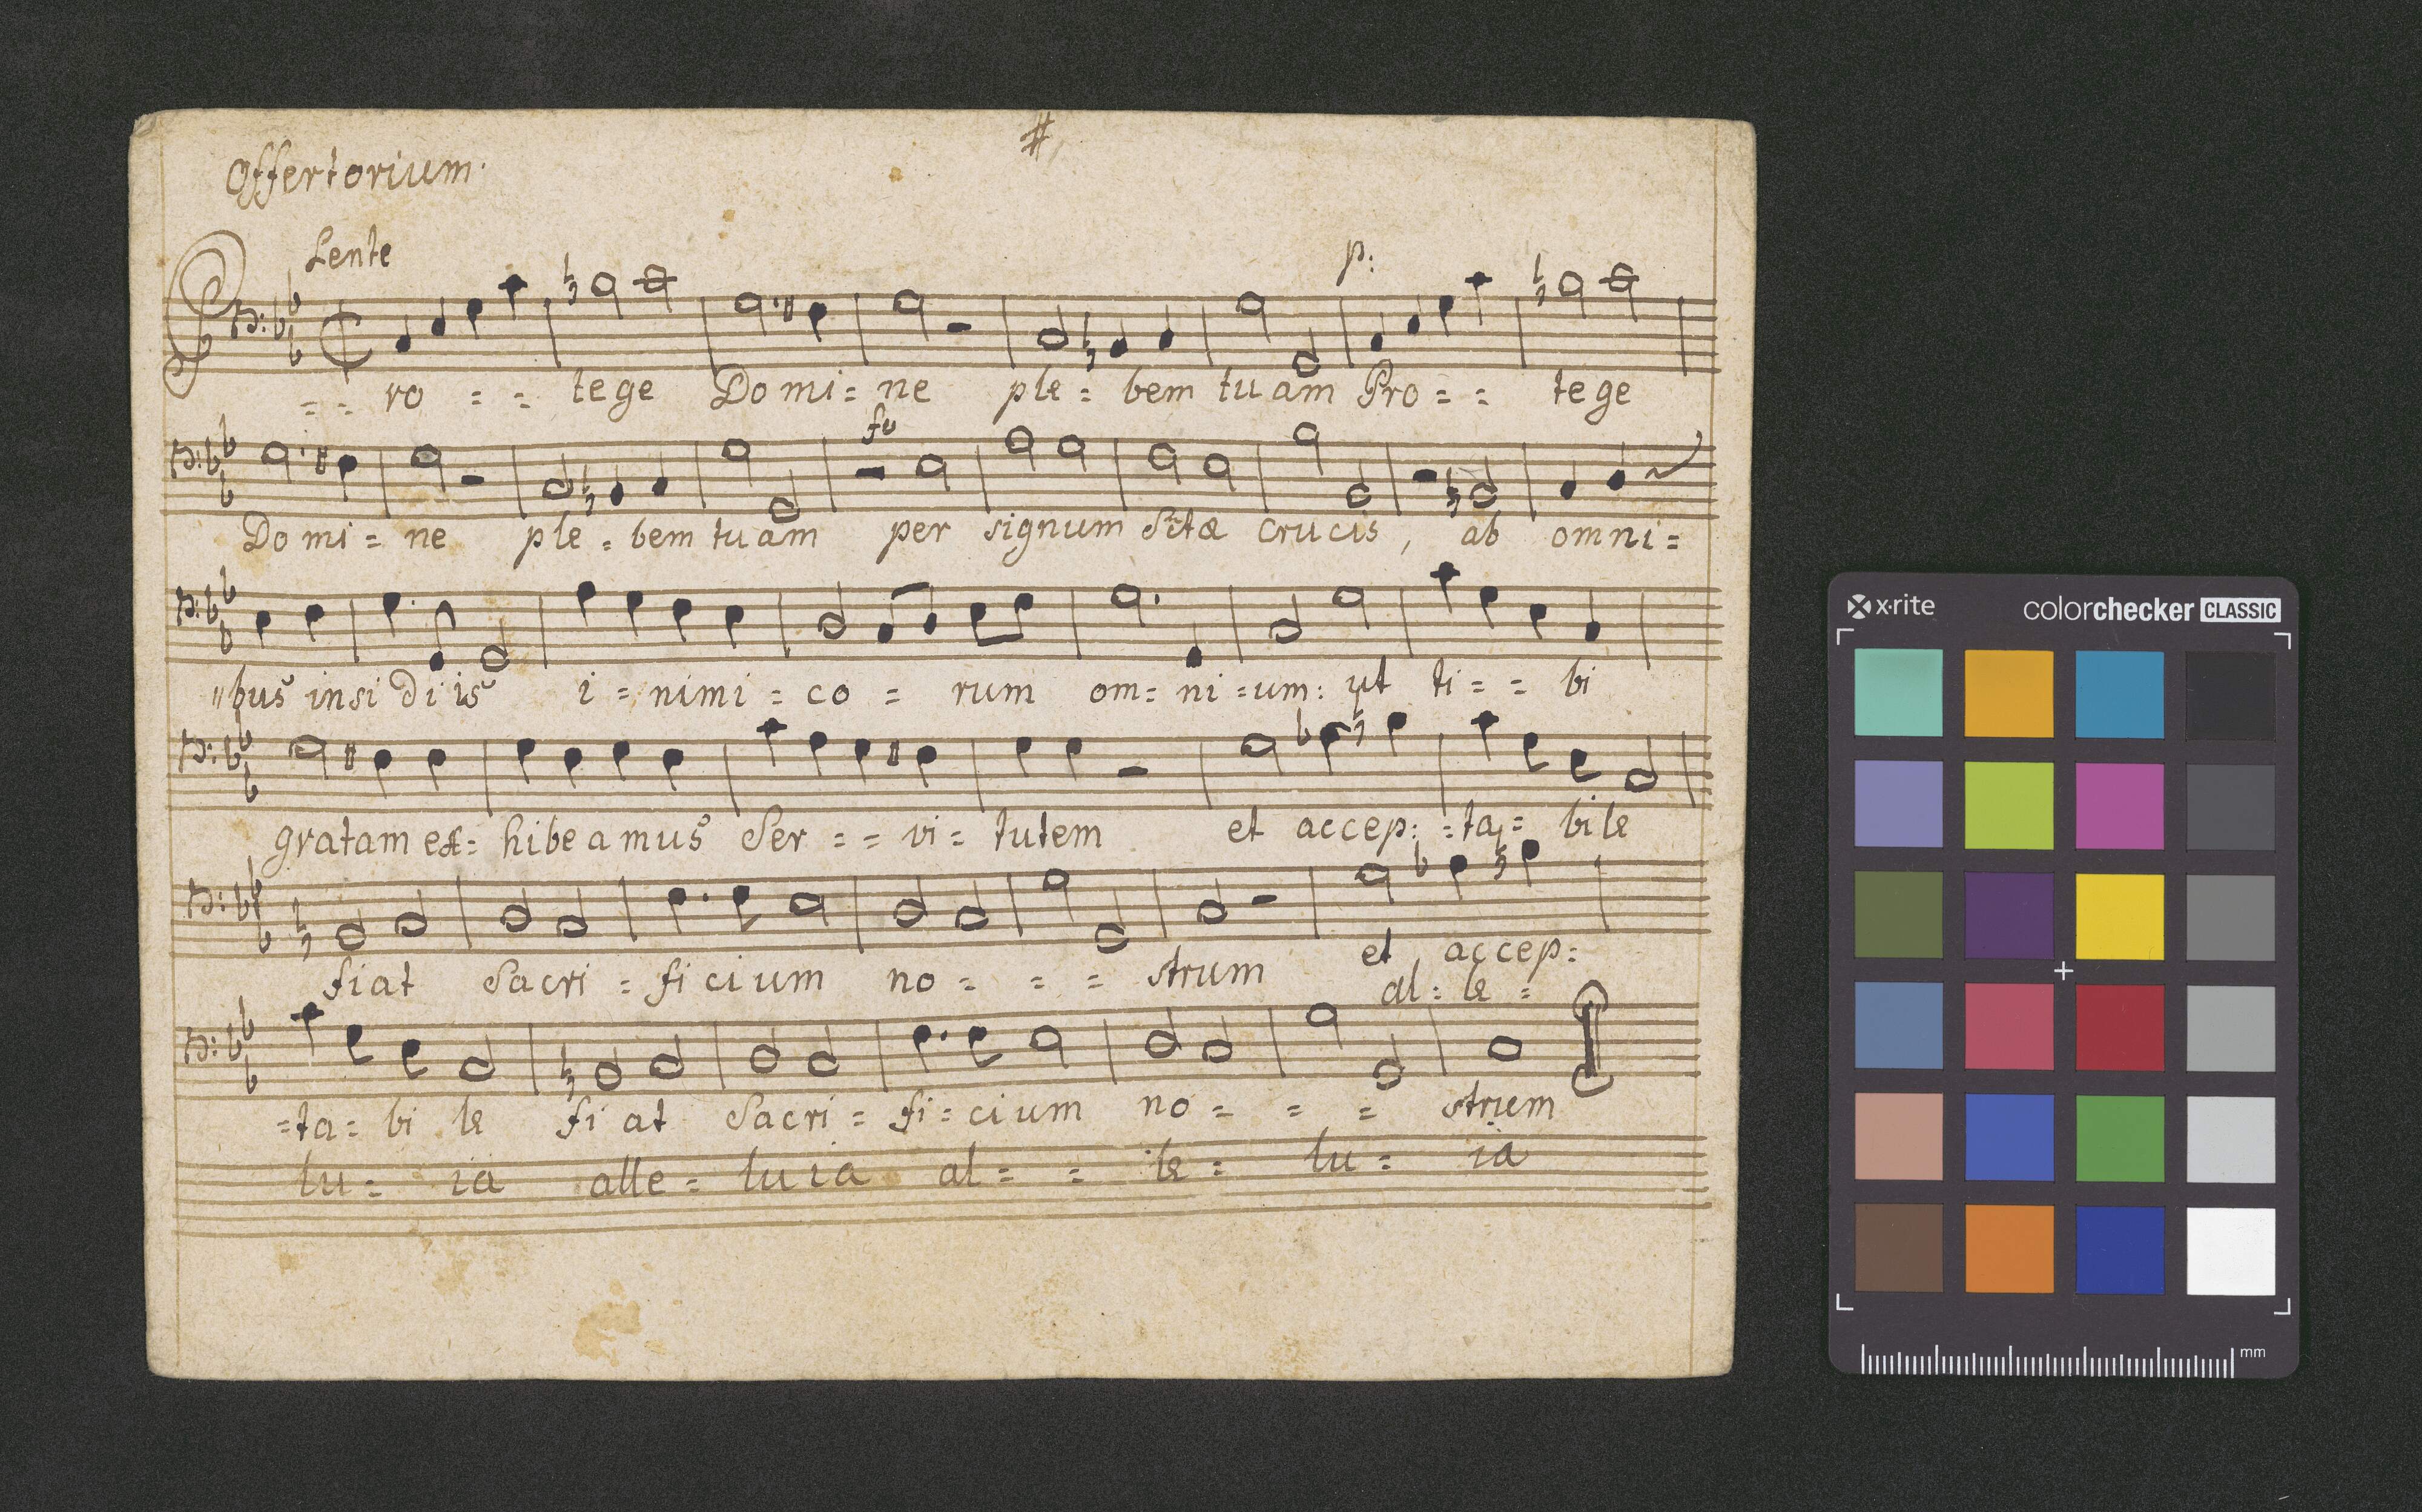 Offertorium.
Lente
p:
Pro = = tege Domi = ne ple = bem tuam Pro = = tege
fo
Domi = ne ple = bem tuam per signum Sctæ crucis, ab omni =
bus insidiis i = nimi = co = rum om = ni = um: ut ti = = bi
gratam ex = hibeamus Ser = = vi = tutem et accep: = ta = bile
fiat Sacri = ficium no = = = strum et accep:
al = le =
= ta = bi le fiat Sacri = fi = cium no = = = strum
lu = ia alle = luia al = = le = lu = ia
x-rite colorchecker CLASSIC
mm